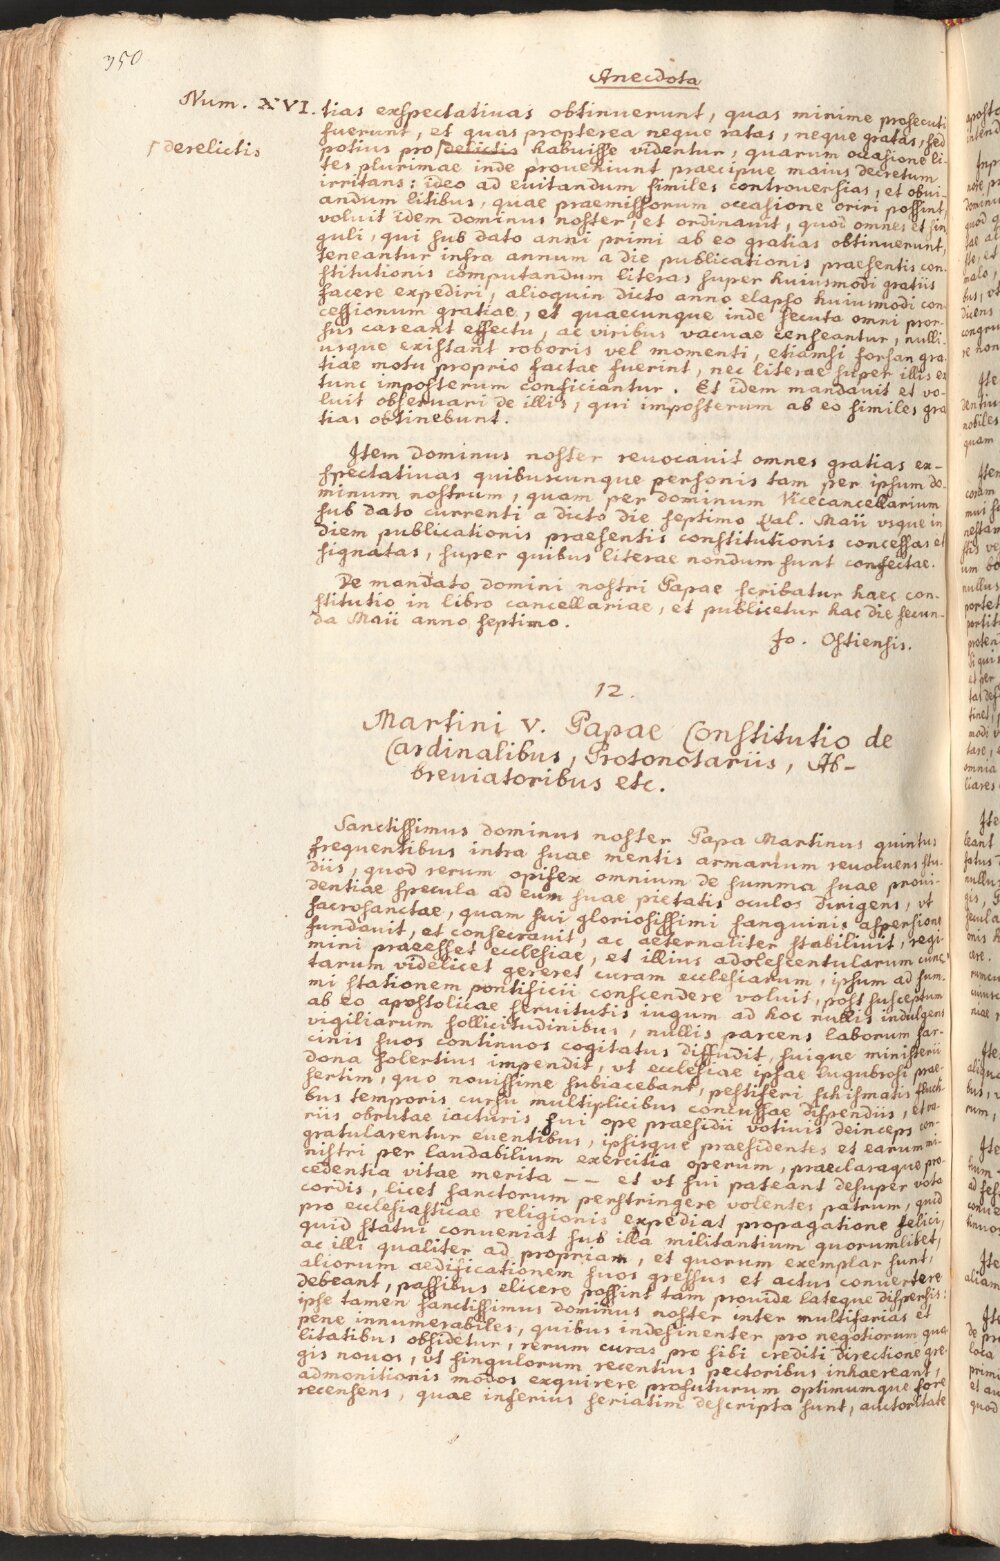 950
Anecdota
Num. XVI.
derelictis
tias exspectativas obtinuerunt, quas minime prosecuti
fuerunt, et quas propterea neque ratas, neque gratas, sed
potius pro delictis habuisse videntur, quarum occasione li-
tes plurimae inde proueniunt praecipue maius decretum
irritans: ideo ad euitandum similes controuersias, et obui-
andum litibus, quae praemissorum occasione oriri possint,
voluit idem dominus noster, et ordinauit, quod omnes et sin
guli, qui sub dato anni primi ab eo gratias obtinuerunt,
teneantur infra annum a die publicationis praesentis con-
stitutionis computandum literas super huiusmodi gratiis
facere expediri, alioquin dicto anno elapso huiusmodi con-
cessionum gratiae, et quaecunque inde secuta omni pror-
sus careant effectu, ac viribus vacuae censeantur, nulli-
usque existant roboris vel momenti, etiamsi forsan gra
tiae motu proprio factae fuerint, nec literae super illis ex
tunc imposterum conficiantur. Et idem mandauit et vo-
luit obseruari de illis, qui imposterum ab eo similes gra
tias obtinebunt.
Item dominus noster reuocauit omnes gratias ex-
spectatiuas quibuscunque personis tam per ipsum do-
minum nostrum, quam per dominum Vicecancellarium
sub dato currenti a dicto die septimo Kal. Maii vsque in
diem publicationis praesentis constitutionis concessas et
signatas, super quibus literae nondum sunt confectae.
De mandato domini nostri Papae scribatur haec con-
stitutio in libro cancellariae, et publicetur hac die secun-
da Maii anno septimo.
Jo. Ostiensis.
12.
Martini V. Papae Constitutio de
Cardinalibus, Protonotariis, Ab-
breuiatoribus etc.
Sanctissimus dominus noster Papa Martinus quintus
frequentibus intra suae mentis armarium reuoluens stu-
diis, quod rerum opifex omnium de summa suae proui-
dentiae specula ad eum suae pietatis oculos dirigens, vt
sacrosanctae, quam sui gloriosissimi sanguinis aspersione
fundauit, et consecrauit, ac aeternaliter stabiliuit, regi
mini praeesset ecclesiae, et illius adolescentularum cunc-
tarum videlicet gereret curam ecclesiarum, ipsum ad sum-
mi stationem pontificii conscendere voluit, post susceptum
ab eo apostolicae seruitutis iugum ad hoc nullis indulgens
vigiliarum sollicitudinibus, nullis parcens laborum sar-
cinis suos continuos cogitatus diffudit, suique ministerii
dona solertius impendit, vt ecclesiae ipsae lugubrosi prae-
sertim, quo nouissime subiacebant, pestiferi schismatis flucti-
bus temporis cursu multiplicibus concussae dispendiis, et va-
riis obrutae iacturis sui ope praesidii votiuis deinceps con-
gratularentur euentibus, ipsisque praesidentes et earum mi-
nistri per laudabilium exercitia operum, praeclaraque pro-
cedentia vitae merita -- et vt sui pateant desuper vota
cordis, licet sanctorum perstringere volentes patrum, quid
pro ecclesiasticae religionis expediat propagatione felici,
quid statui conueniat sub illa militantium quorumlibet,
ac illi qualiter ad propriam, et quorum exemplar sunt,
aliorum aedificationem suos gressus et actus conuertere
debeant, passibus elicere possint tam prouide lateque dispersis:
ipse tamen sanctissimus dominus noster inter multifarias et
pene innumerabiles, quibus indesinenter pro negotiorum qua
litatibus obsidetur, rerum curas pro sibi crediti directione gre-
gis nouos, vt singulorum recentius pectoribus inhaereant,
admonitionis modos exquirere profuturum optimumque fore
recensens, quae inferius seriatim descripta sunt, auctoritate